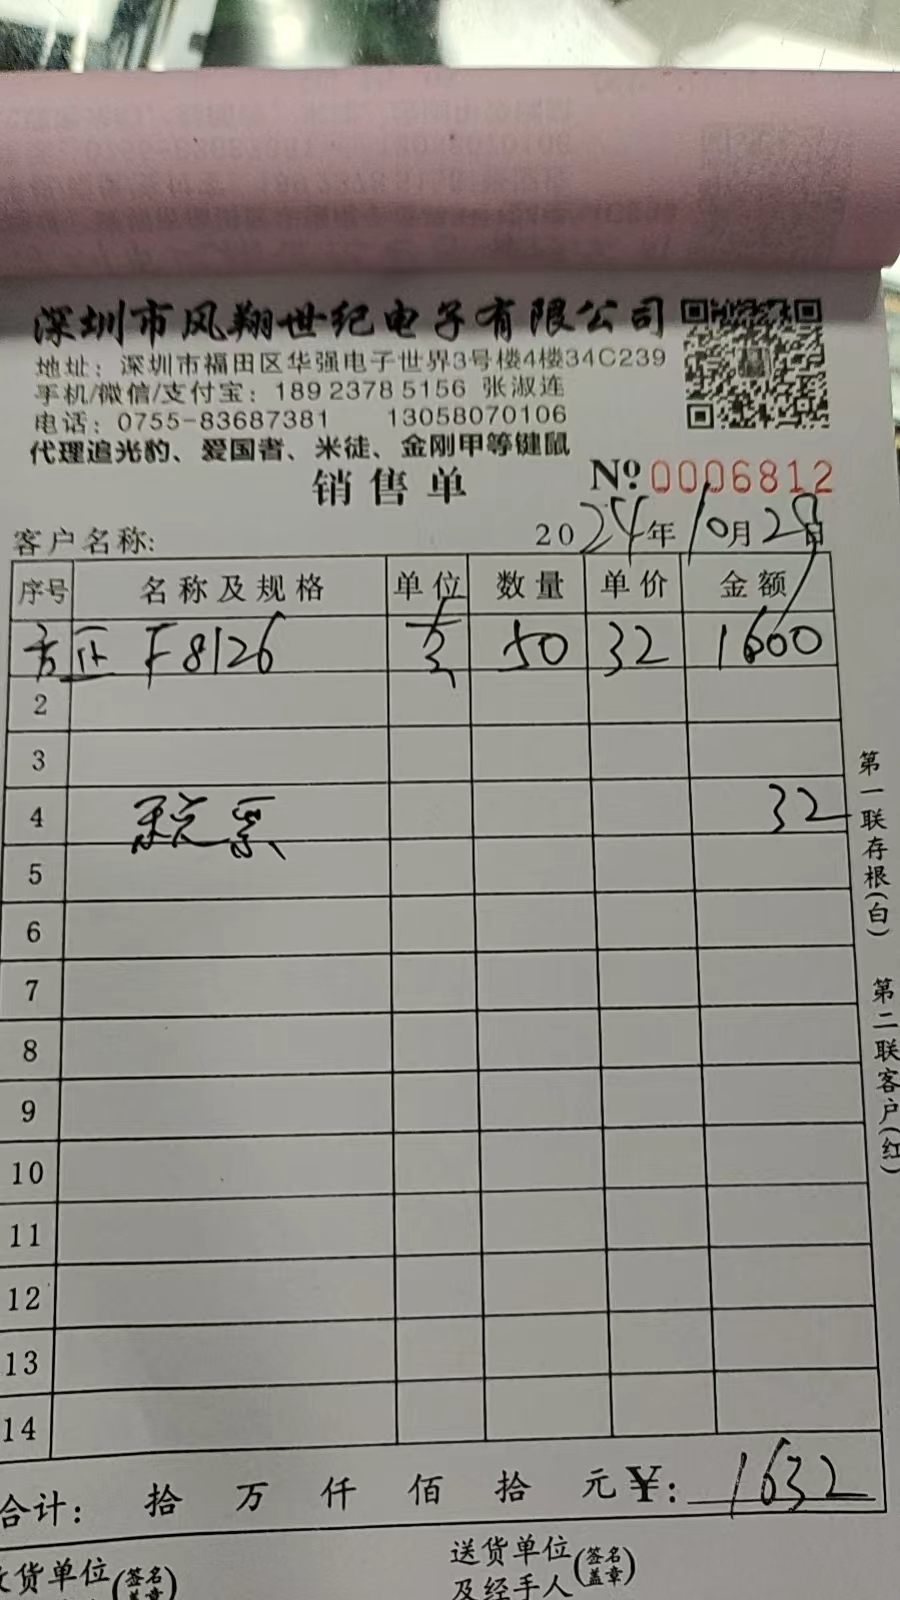 深圳市风翔世纪电子有限公司
地址：深圳市福田区华强电子世界3号楼4楼34C239
手机/微信/支付宝：189 2378 5156 张淑连
电话：0755-83687381 13058070106
代理追光豹、爱国者、米徒、金刚甲等键鼠
销售单 Nº 0006812
客户名称: 2024年10月28日
序号 名称及规格 单位 数量 单价 金额
方正 F8126 套 50 32 1600
2
3
4 税票 32
5
6
7
8
9
10
11
12
13
14
合计: 拾 万 仟 佰 拾 元 ¥: 1632
收货单位(签名盖章) 送货单位(签名盖章)
及经手人
第一联存根(白) 第二联客户(红)